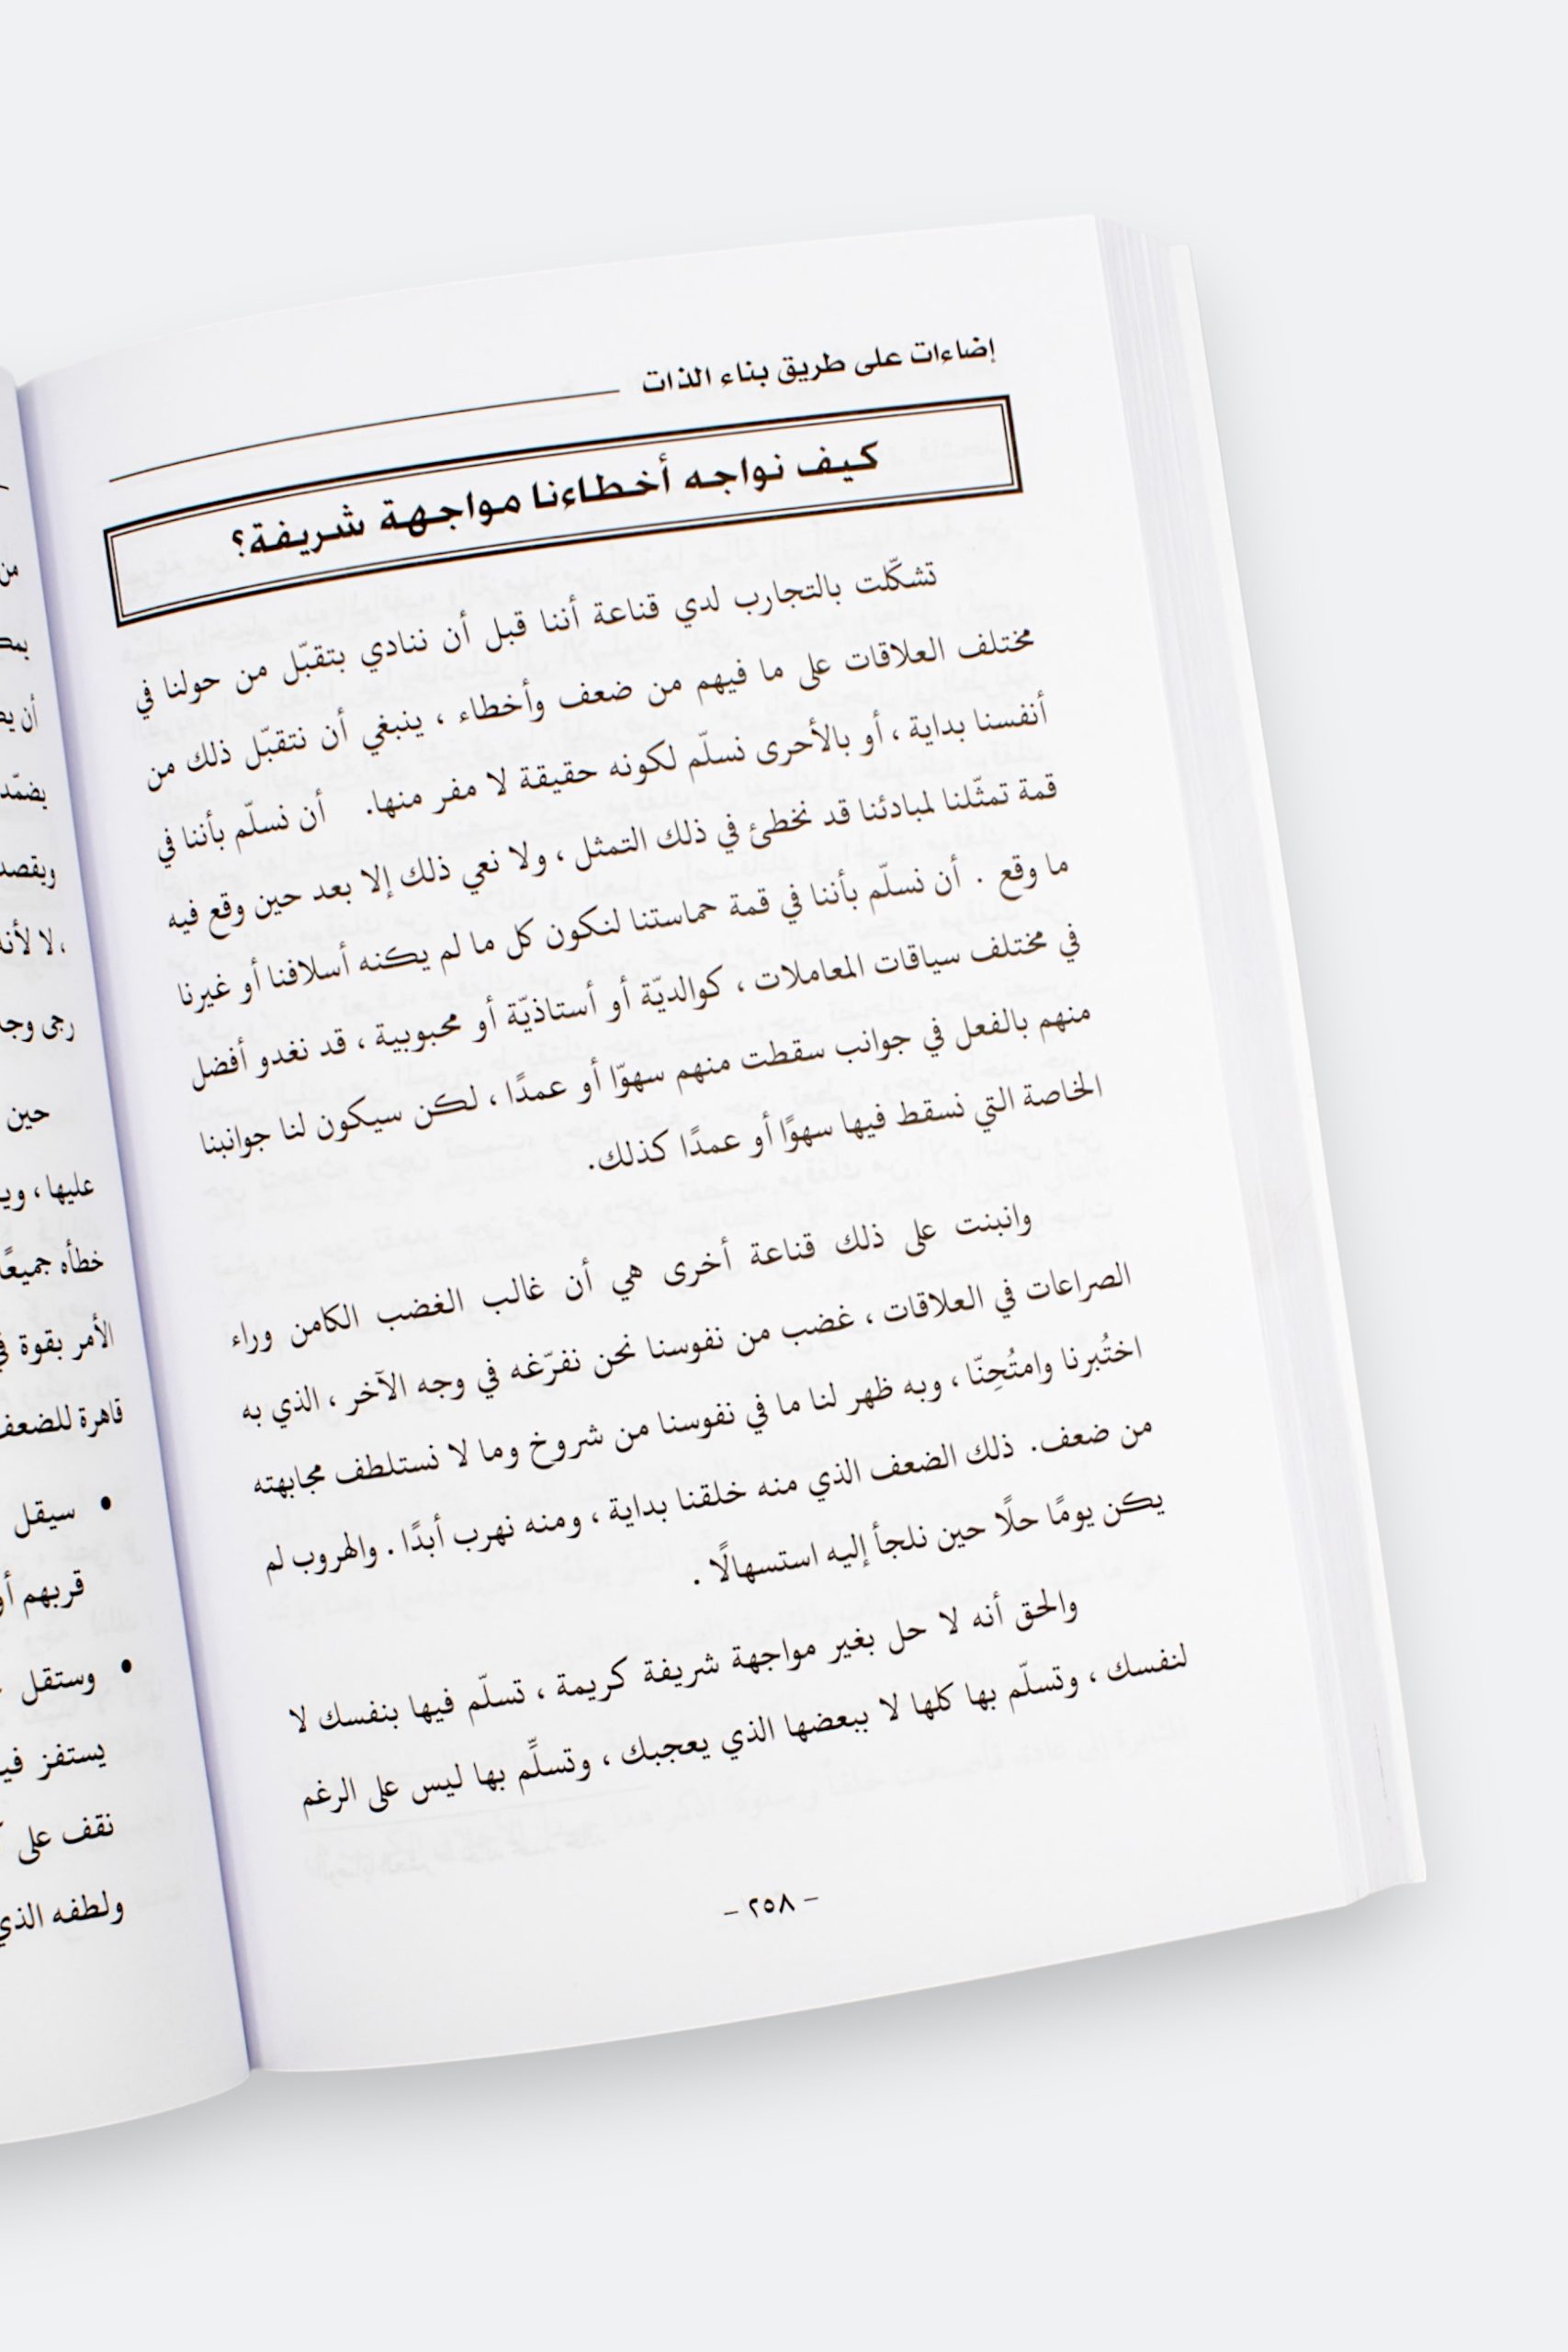 إضاءات على طريق بناء الذات
كيف نواجه أخطاءنا مواجهة شريفة؟
تشكّلت بالتجارب لدي قناعة أننا قبل أن ننادي بتقبّل من حولنا في
مختلف العلاقات على ما فيهم من ضعف وأخطاء ، ينبغي أن نتقبّل ذلك من
أنفسنا بداية ، أو بالأحرى نسلّم لكونه حقيقة لا مفر منها. أن نسلّم بأننا في
قمة تمثّلنا لمبادئنا قد نخطئ في ذلك التمثل ، ولا نعي ذلك إلا بعد حين وقع فيه
ما وقع . أن نسلّم بأننا في قمة حماستنا لنكون كل ما لم يكنه أسلافنا أو غيرنا
في مختلف سياقات المعاملات ، كوالديّة أو أستاذيّة أو محبوبية ، قد نغدو أفضل
منهم بالفعل في جوانب سقطت منهم سهوًا أو عمدًا ، لكن سيكون لنا جوانبنا
الخاصة التي نسقط فيها سهوًا أو عمدًا كذلك.
وانبنت على ذلك قناعة أخرى هي أن غالب الغضب الكامن وراء
الصراعات في العلاقات ، غضب من نفوسنا نحن نفرّغه في وجه الآخر ، الذي به
اختُبرنا وامتُحِنّا ، وبه ظهر لنا ما في نفوسنا من شروخ وما لا نستلطف مجابهته
من ضعف. ذلك الضعف الذي منه خلقنا بداية ، ومنه نهرب أبدًا . والهروب لم
يكن يومًا حلًا حين نلجأ إليه استسهالًا .
والحق أنه لا حل بغير مواجهة شريفة كريمة ، تسلّم فيها بنفسك لا
لنفسك ، وتسلّم بها كلها لا ببعضها الذي يعجبك ، وتسلِّم بها ليس على الرغم
– ٢٥٨ –
من
أن
بضمّد
ويقصد
، لا لأنه
رجى
حين
عليها ،
خطأه جميعًا
الأمر بقوة
قاهرة للضعف
• سيقل
قربهم
• وستقل
يستفز
نقف على
ولطفه الذي